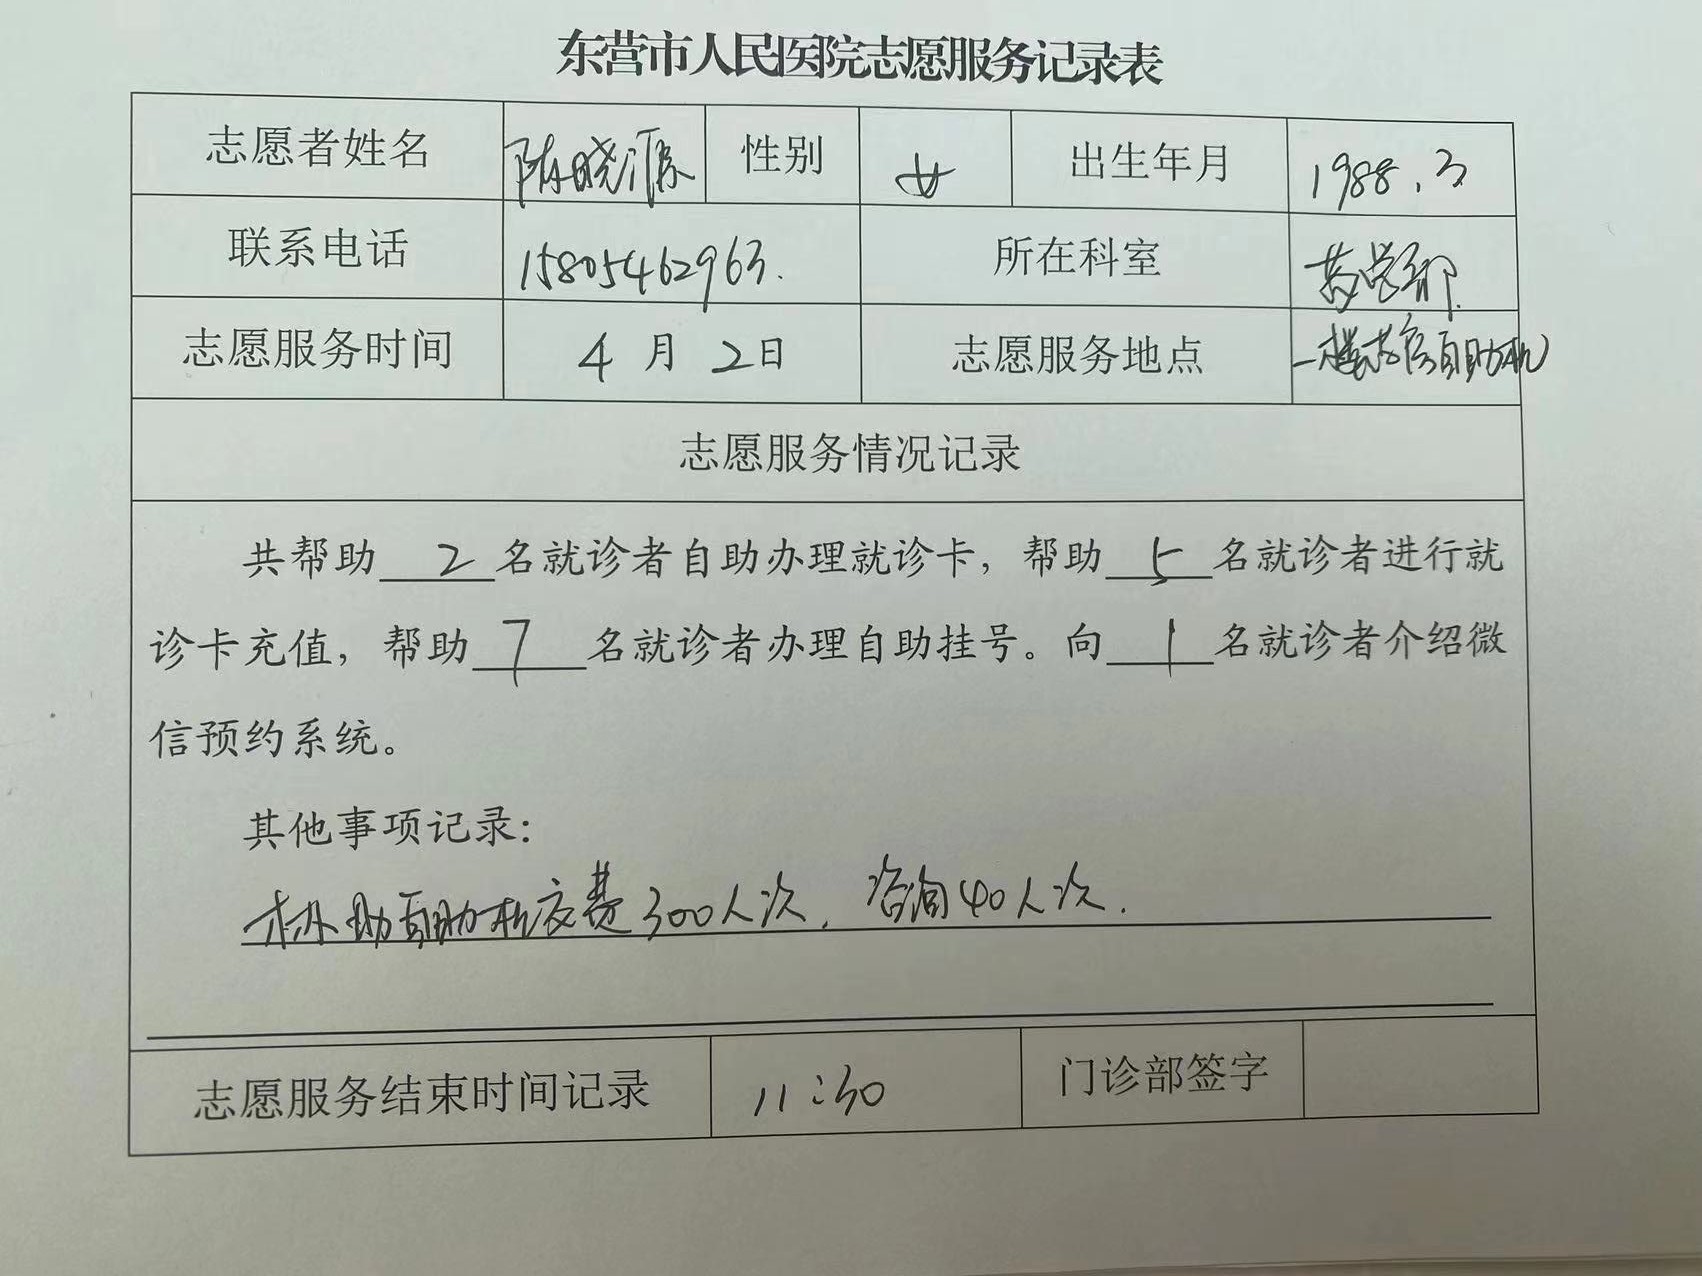 东营市人民医院志愿服务记录表
志愿者姓名 陈晓源 性别 女 出生年月 1988.3
联系电话 15805462963. 所在科室 药学部
志愿服务时间 4月2日 志愿服务地点 一楼药房自助机
志愿服务情况记录
共帮助 2 名就诊者自助办理就诊卡，帮助 5 名就诊者进行就
诊卡充值，帮助 7 名就诊者办理自助挂号。向 1 名就诊者介绍微
信预约系统。
其他事项记录：
协助自助机交费300人次，咨询40人次.
志愿服务结束时间记录 11:30 门诊部签字